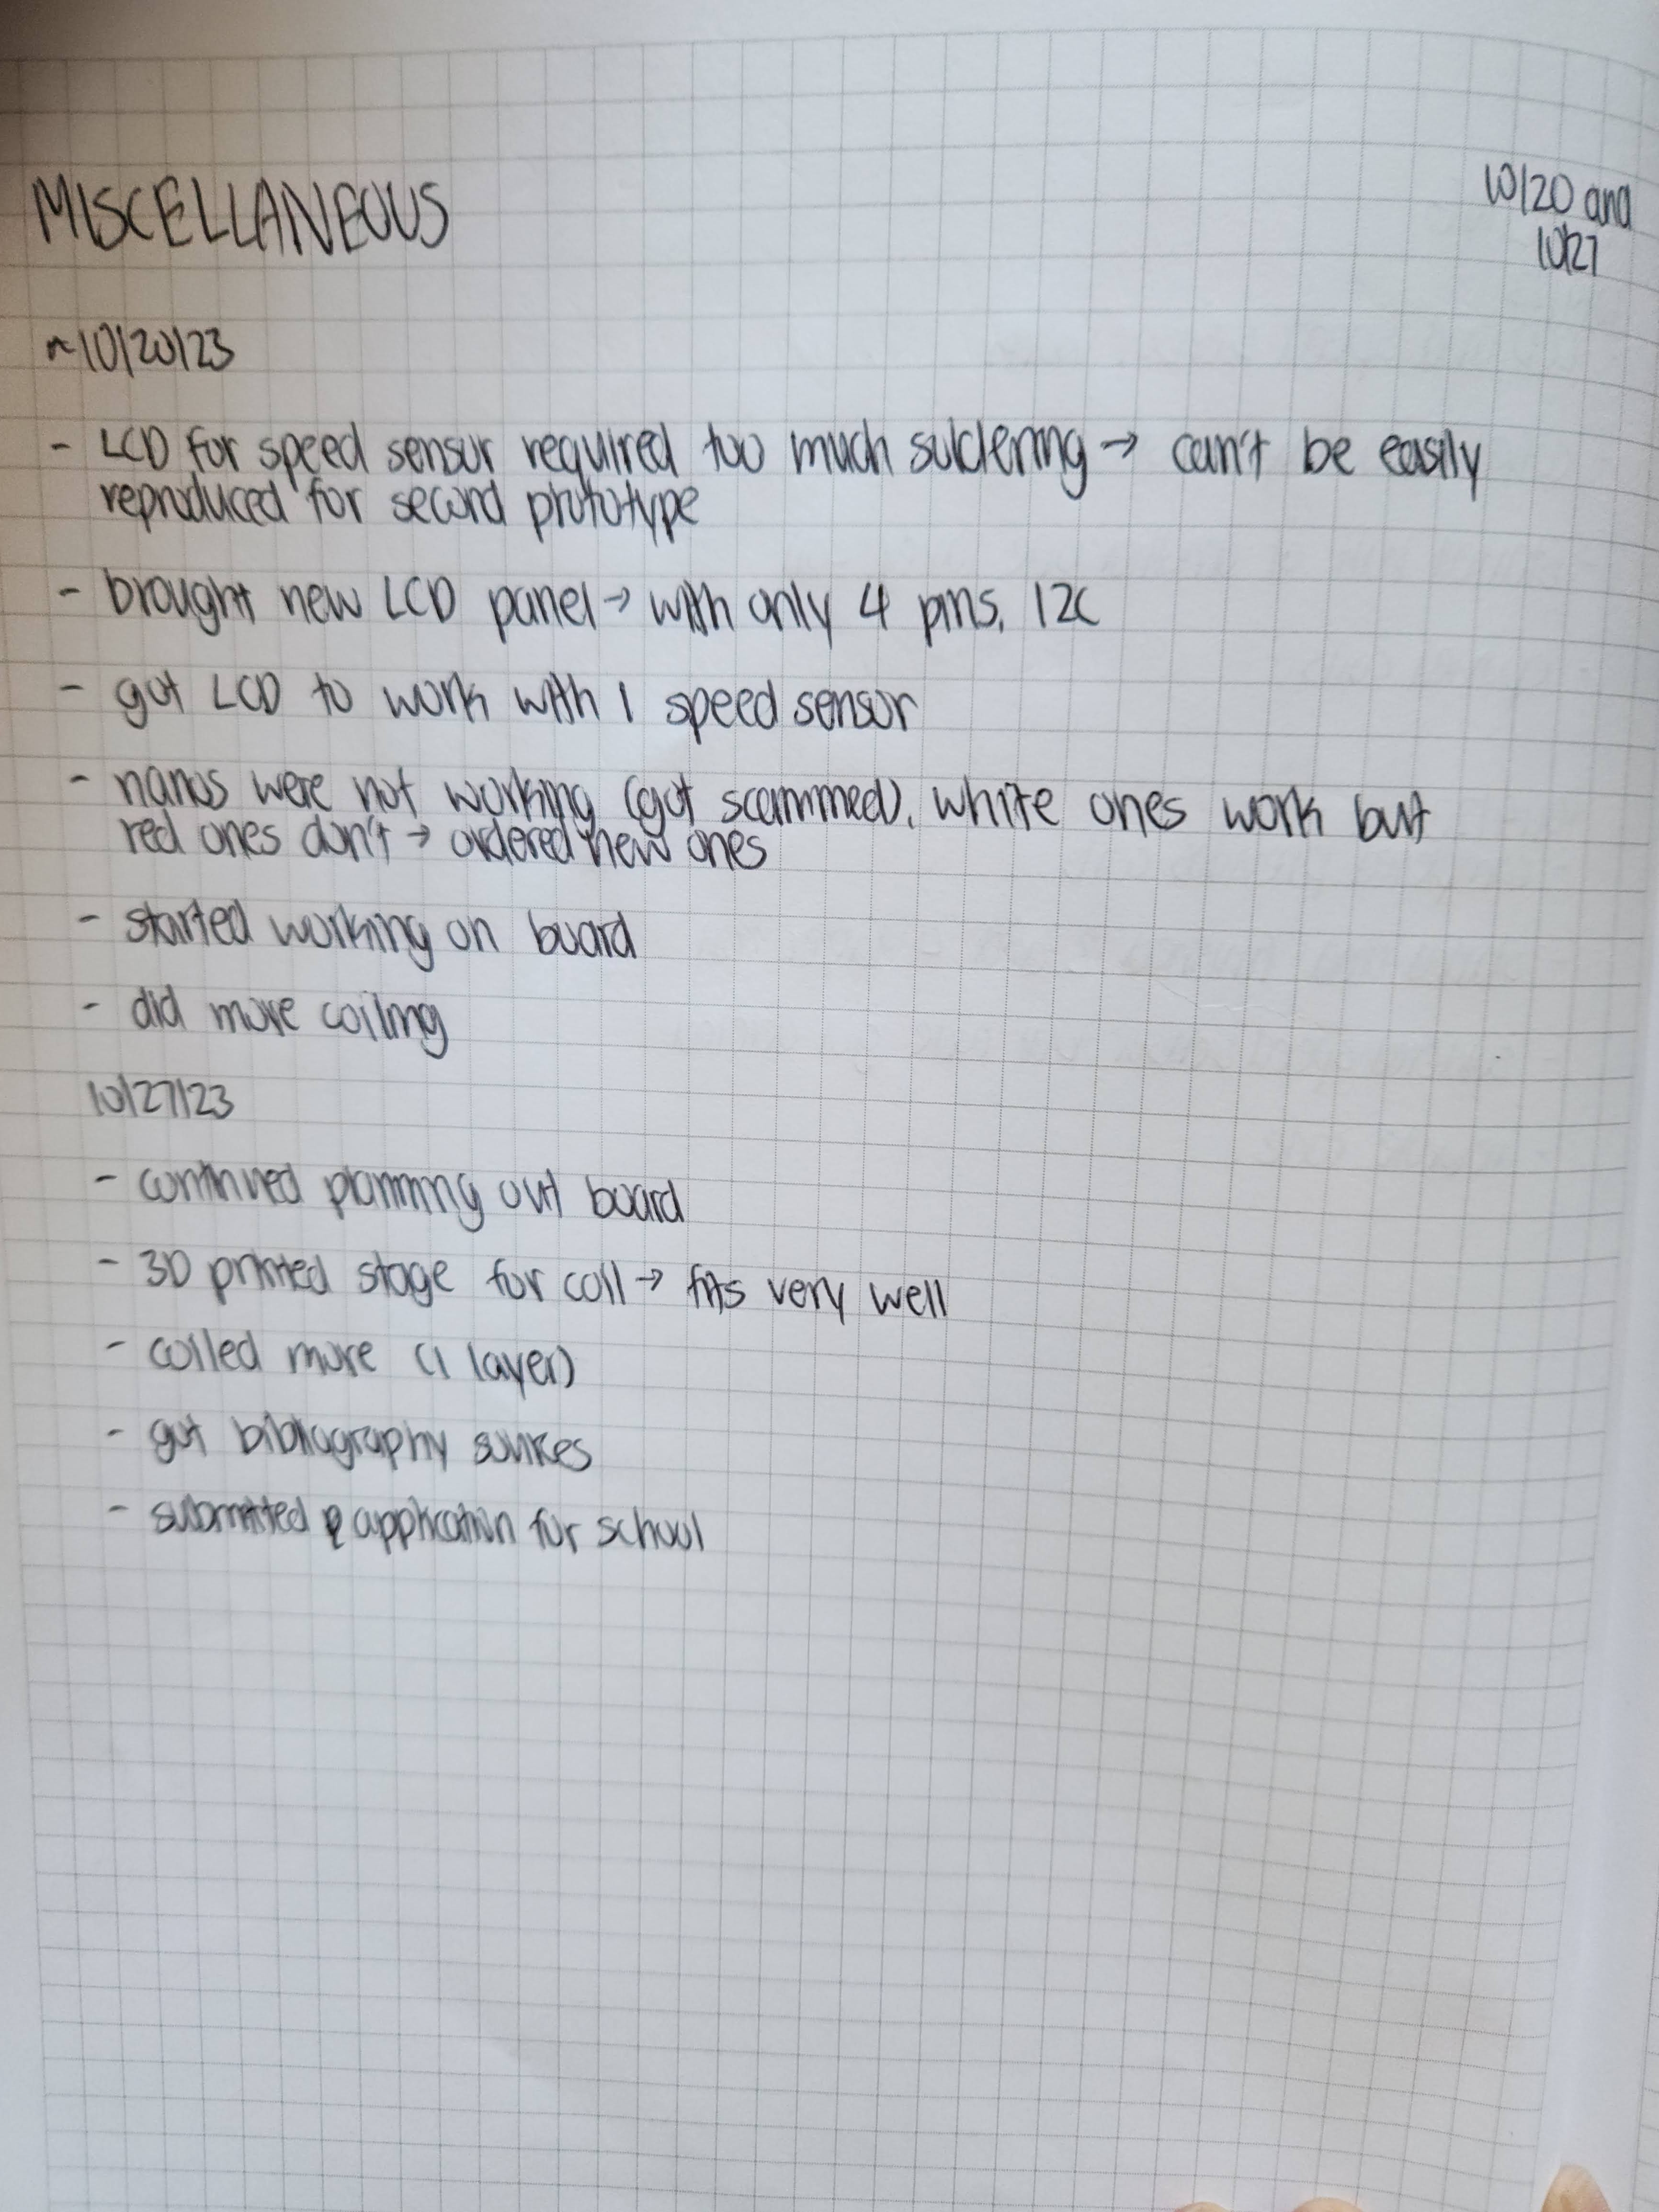 MISCELLANEOUS
10/20 and
10/27
~10/20/23
- LCD for speed sensor required too much soldering → can't be easily
reproduced for second prototype
- brought new LCD panel → with only 4 pins, I2C
- got LCD to work with 1 speed sensor
- nanos were not working (got scammed), white ones work but
red ones don't → ordered new ones
- started working on board
- did more coiling
10/27/23
- continued planning out board
- 3D printed stage for coil → fits very well
- coiled more (1 layer)
- got bibliography sources
- submitted application for school